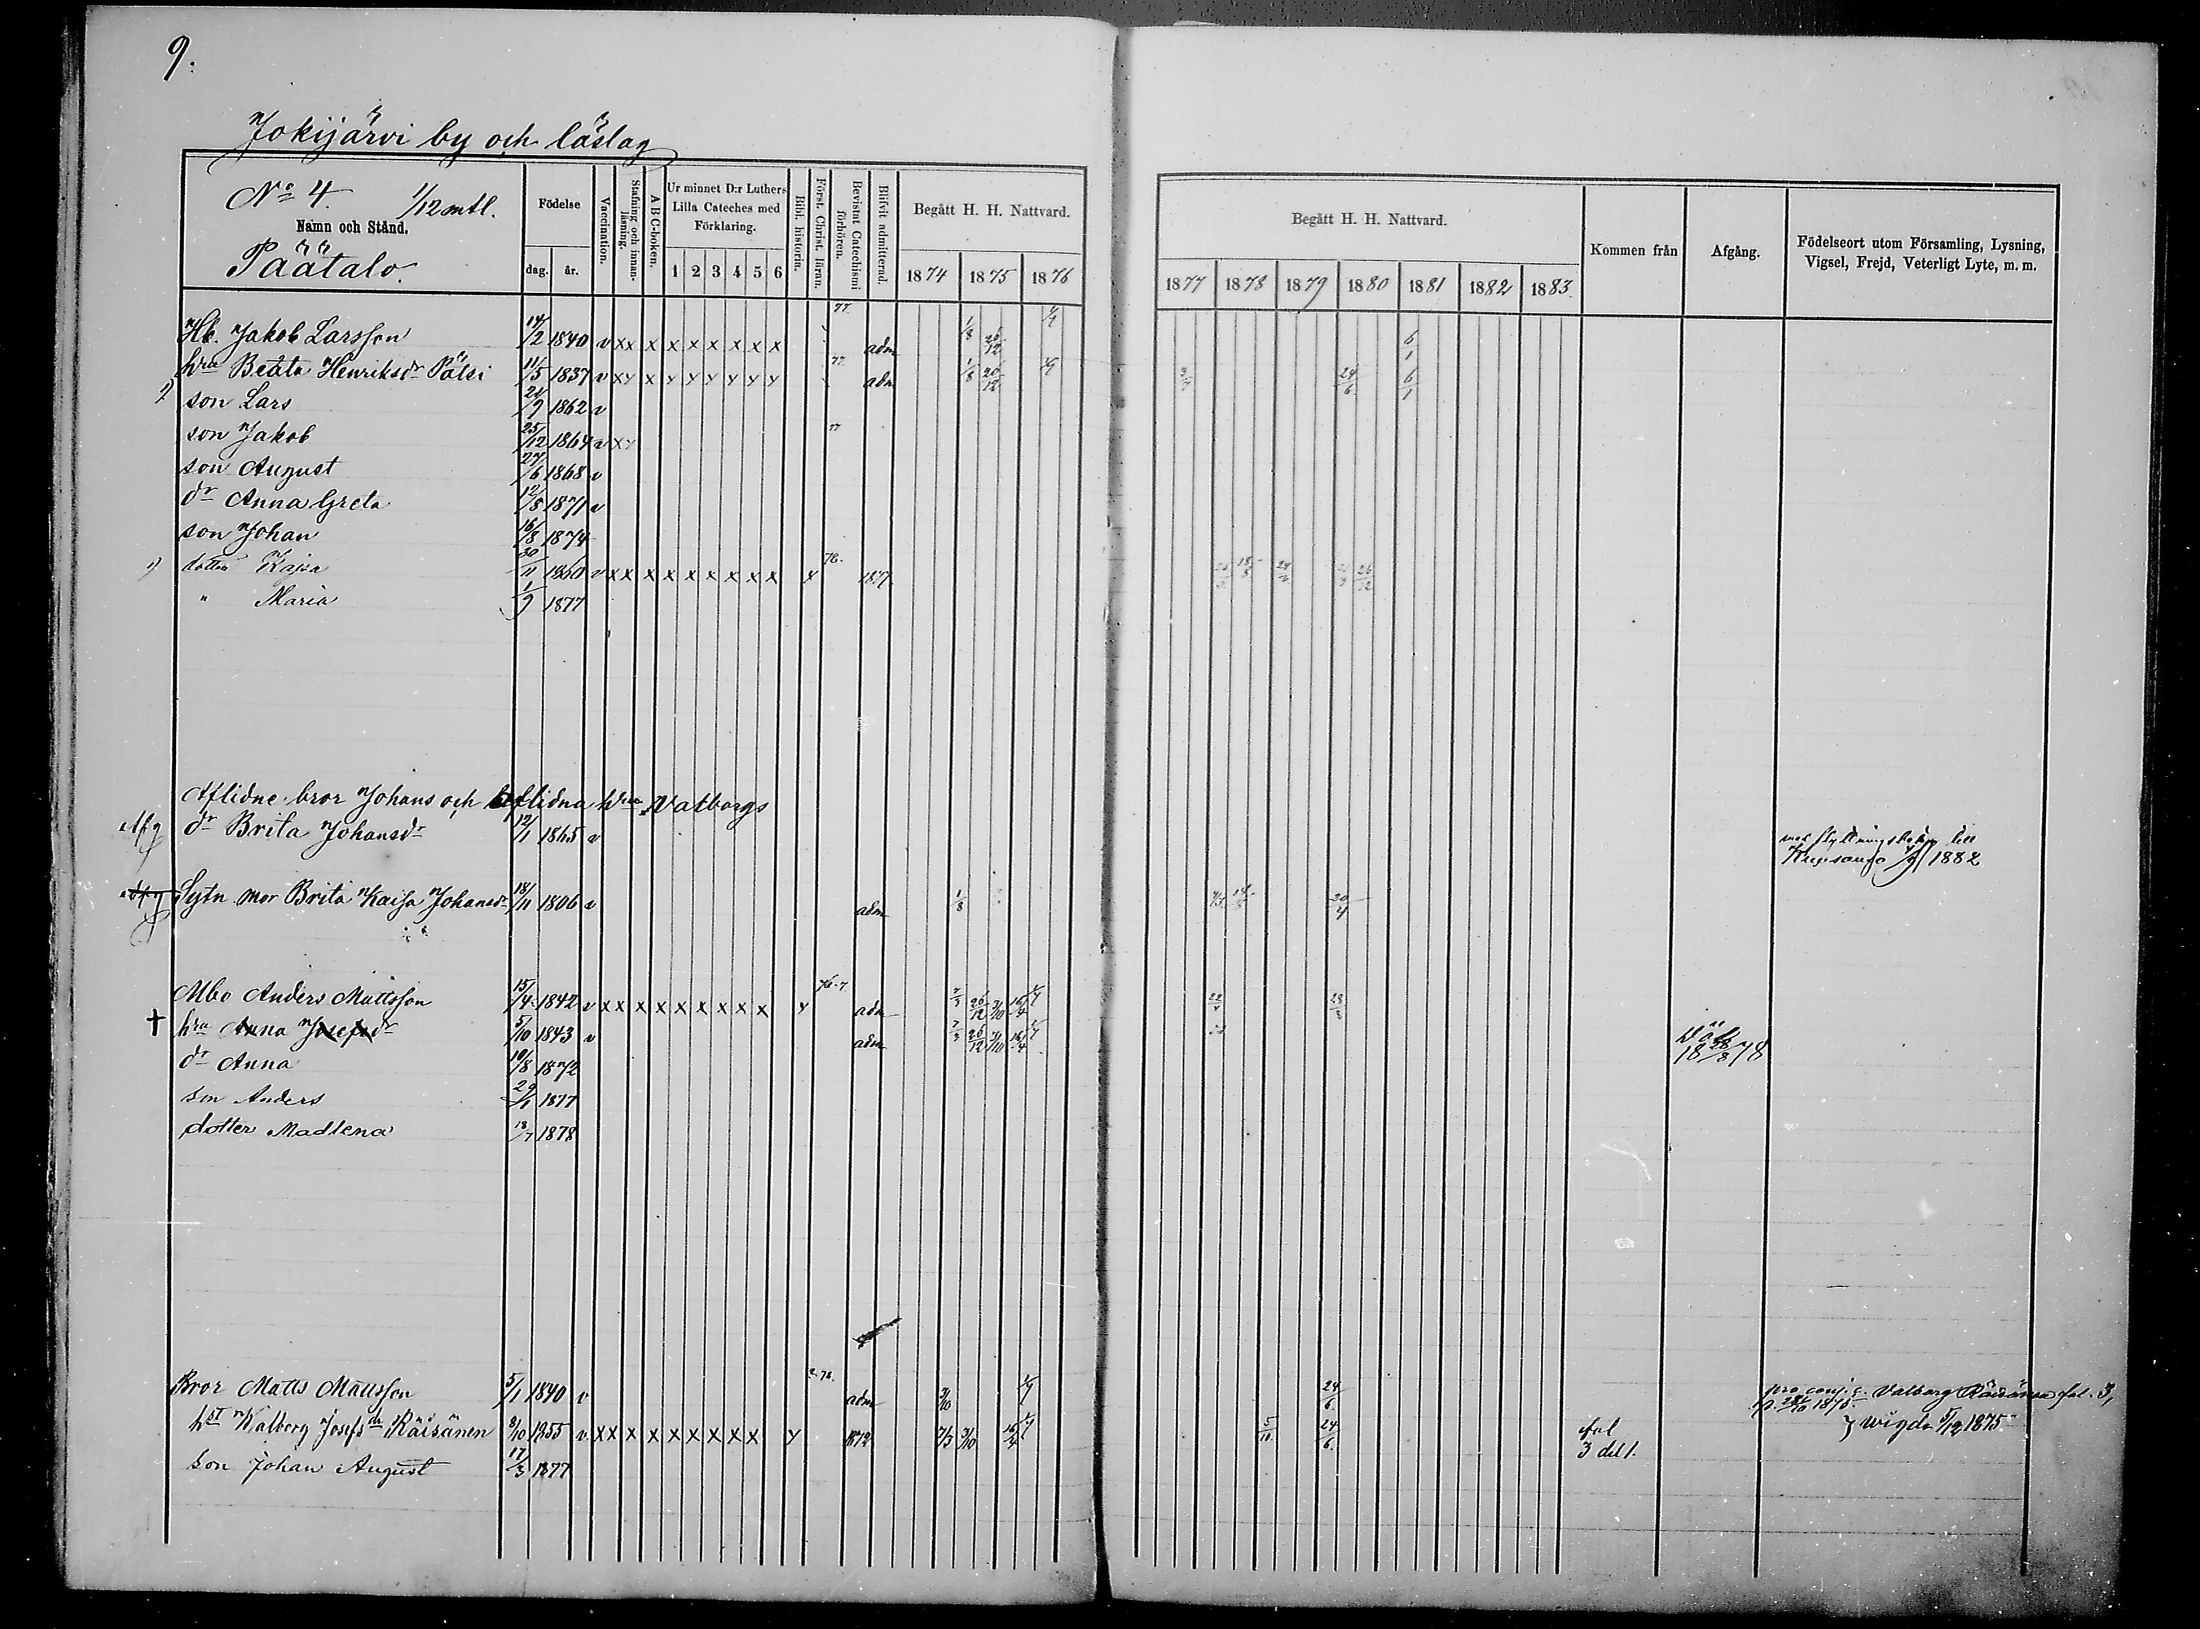 9.
Jokijärvi by och läslag
No 4. 1/12 mtl.
Namn och Stånd.
Päätalo.
Födelse
dag. år.
Vaccination.
Stafning och innanläsning.
A B C-boken.
Ur minnet D:r Luthers Lilla Cateches med Förklaring.
1 2 3 4 5 6
Bibl. historia.
Först. Christ. läran.
Bevistat Catechismi förhören.
Blifvit admitterad.
Begått H. H. Nattvard.
1874 1875 1876
Begått H. H. Nattvard.
1877 1878 1879 1880 1881 1882 1883
Kommen från
Afgång.
Födelseort utom Församling, Lysning, Vigsel, Frejd, Veterligt Lyte, m. m.
Hb. Jakob Larsson 14/2 1840 v xx x x x x x x x 77 adm 1/8 26/12 6/1
hru Beata Henriksdr Pätsi 11/5 1837 v xy x y y y y y y 77 adm 1/8 26/12 24/6 6/1
1) son Lars 24/9 1862 v
son Jakob 25/12 1864 v xy 77
son August 27/6 1868 v
dr Anna Greta 12/8 1871 v
son Johan 16/8 1874
1) dotter Kajsa 30/11 1860 v x x x x x x x x x y 78. 1877 18/8 26/12
" Maria 1/9 1877
Aflidne bror Johans och aflidna hru Valborgs
Afg dr Brita Johansdr 12/1 1865 v till 1882
Afg Sytn. mor Brita Kaisa Johansdr 18/11 1806 v adm 1/8 20/4
Mbo Anders Mattsson 15/4 1842 v x x x x x x x x x y 76-7 adm 7/3 26/12 3/10 16/4
† hru Anna Josefsdr 5/10 1843 v adm 7/3 26/12 3/10 16/4 Död 18 28/8 78
dr Anna 10/8 1872
son Anders 29/1 1877
dotter Madlena 18/7 1878
Bror Matts Mattsson 5/1 1840 v adm 3/10 24/6. pro conj. c. Valborg Räisänen fol. 3,
hst Walborg Josefsdr Räisänen 8/10 1855 v x x x x x x x x x y 1872 7/3 3/10 16/4 5/10. 24/6. fol 3 del 1. vigda 5/12 1875
son Johan August 17/3 1877